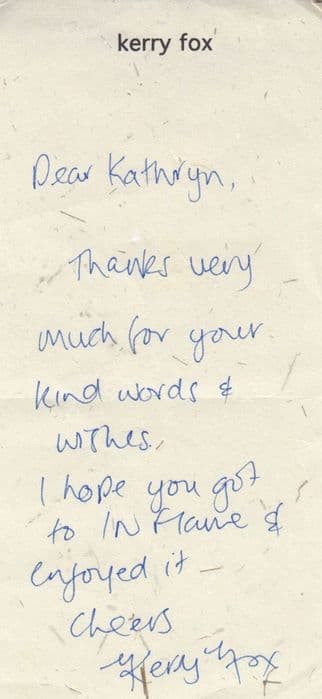 kerry fox
Dear Kathryn,
Thanks very
much for your
kind words &
wishes.
I hope you got
to IN Flame &
enjoyed it –
cheers
Kerry Fox